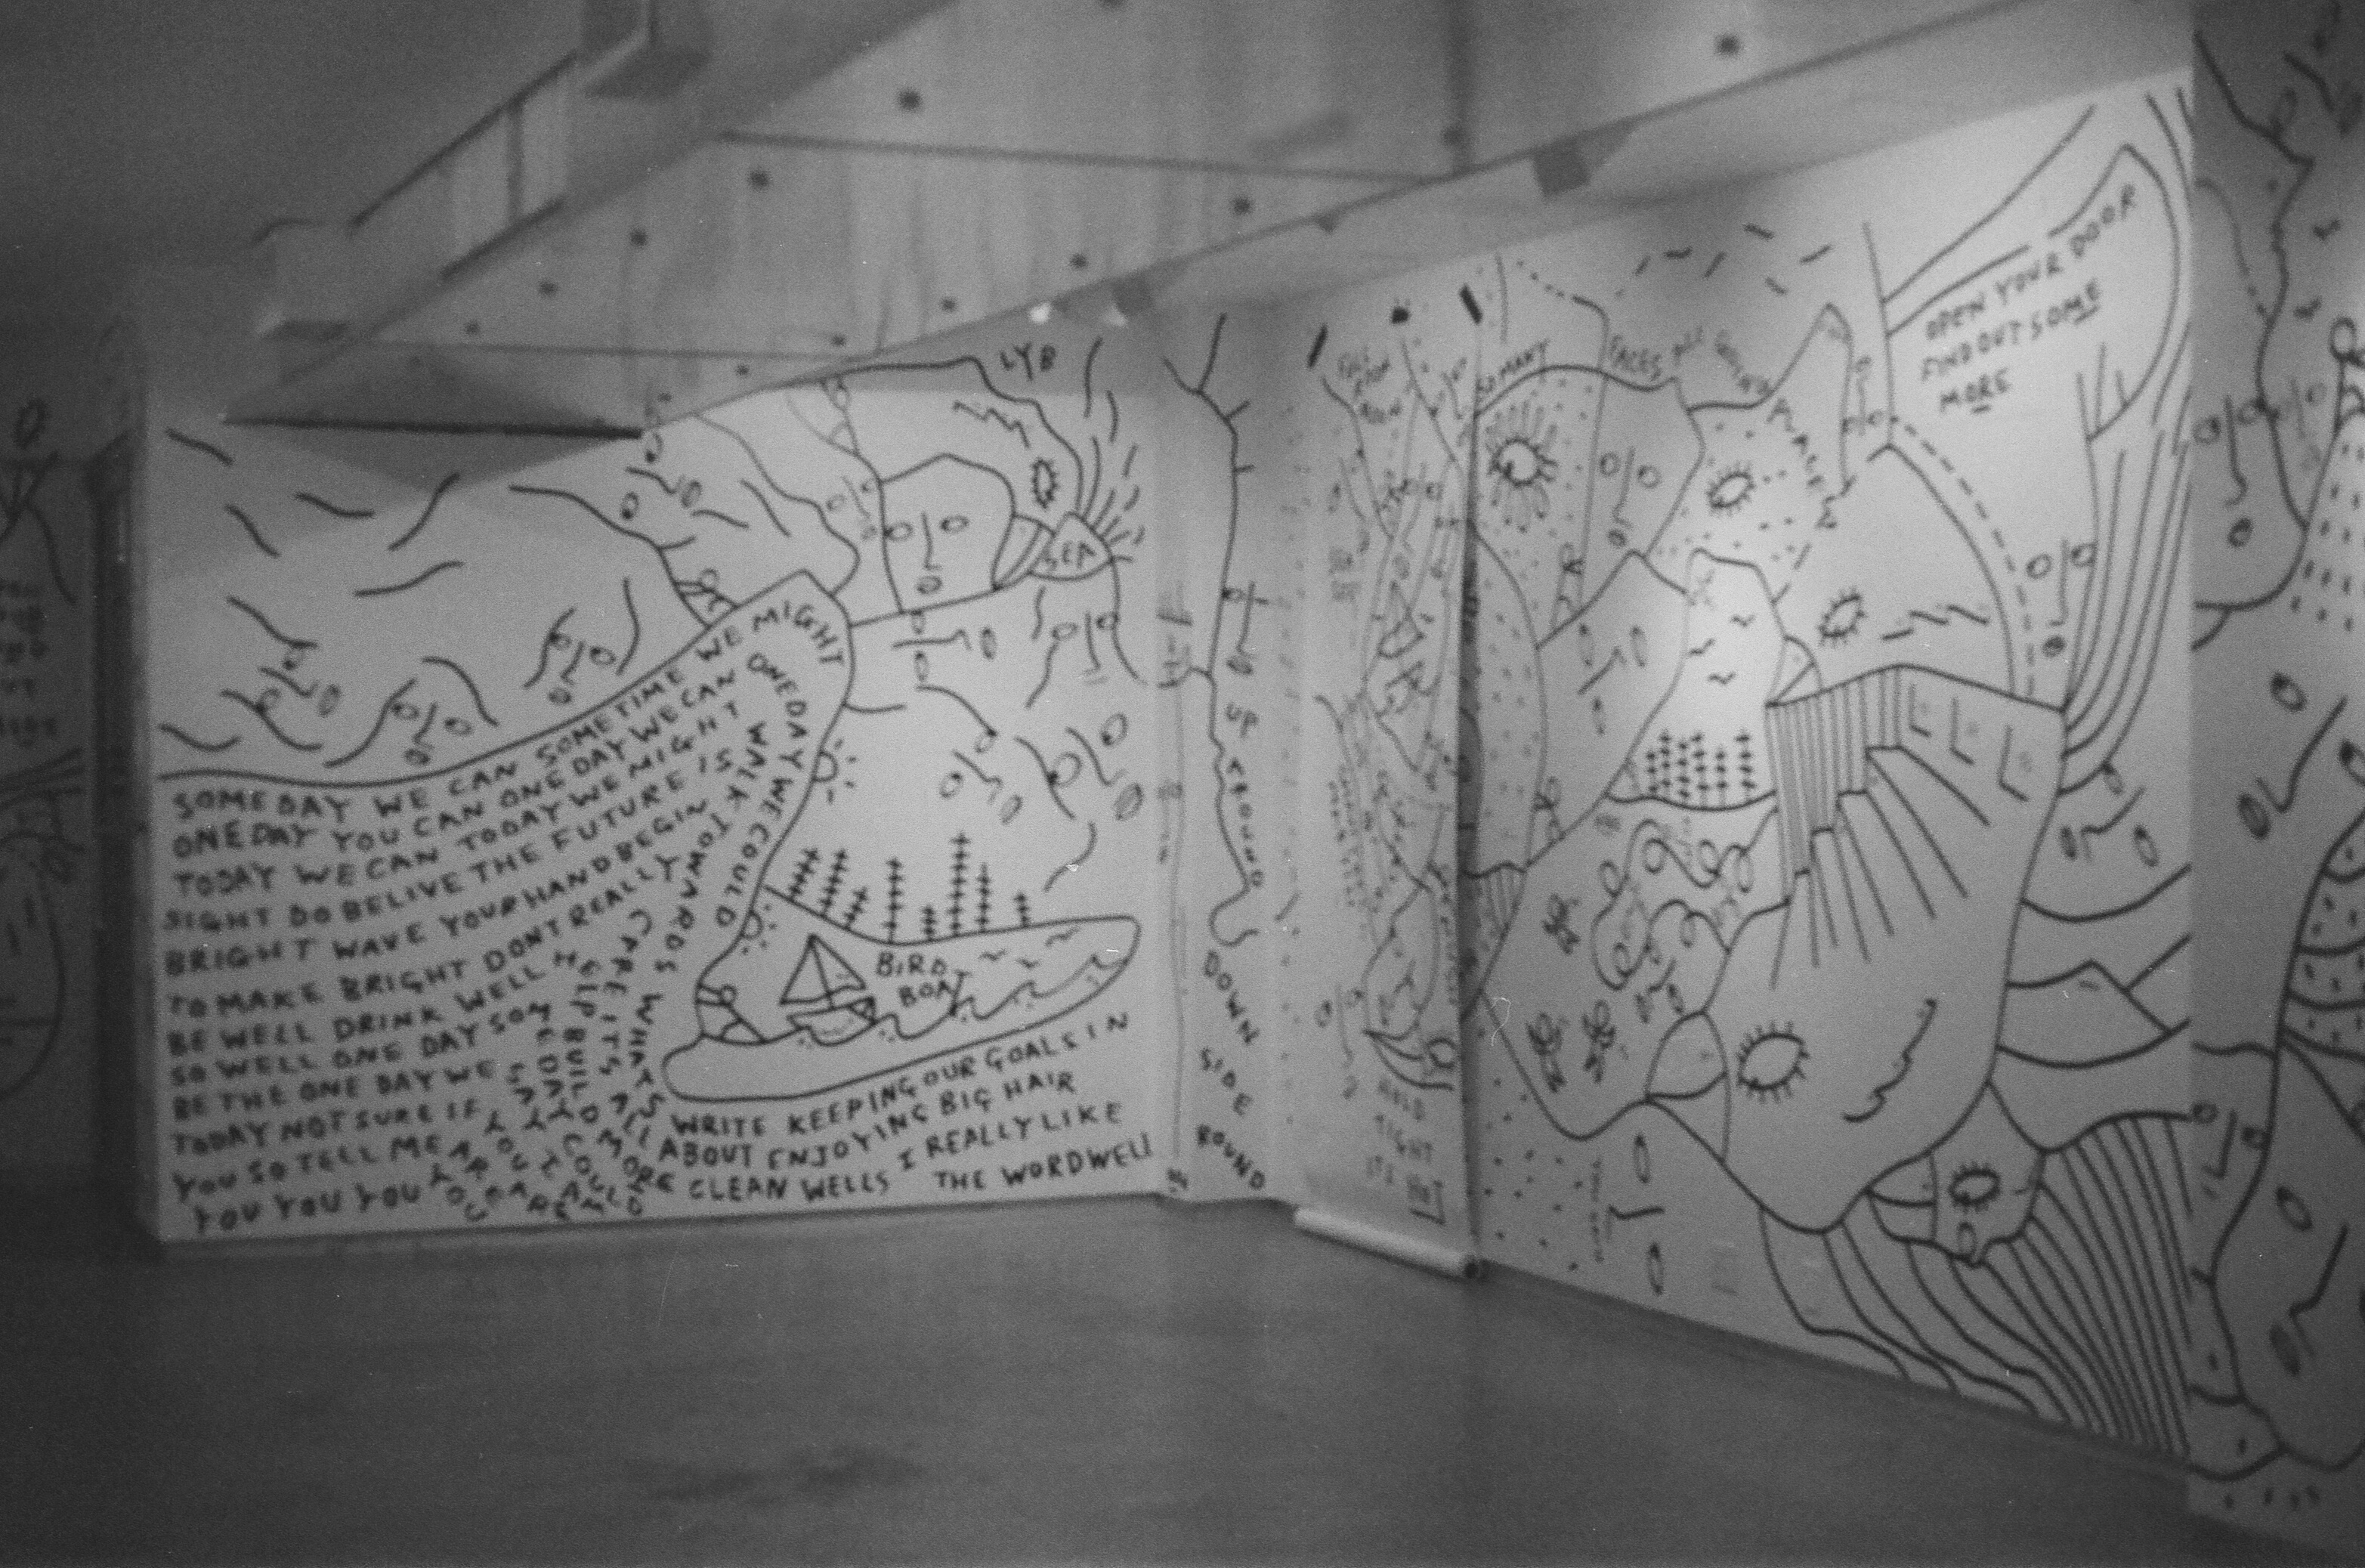 LYB
SEA
SOMEDAY WE CAN SOMETIME WE MIGHT
ONEDAY YOU CAN ONE DAY WE CAN ONEDAY WE COULD
TODAY WE CAN TODAY WE MIGHT WALK TOWARDS WHATS
DO BELIVE THE FUTURE IS
BRIGHT WAVE YOUR HAND BEGIN
TO MAKE BRIGHT DONT REALLY CARE ITS ALL
BE WELL DRINK WELL HELP BUILD MORE
SO WELL ONE DAY SOMEDAY
BE THE ONE DAY WE
TODAY NOT SURE IF
YOU SO TELL ME
YOU YOU YOU YOU
BIRD
BOAT
WRITE KEEPING OUR GOALS IN
ABOUT ENJOYING BIG HAIR
CLEAN WELLS I REALLY LIKE
THE WORDWELL
UP
AROUND
DOWN
SIDE
ROUND
HOLD
TIGHT
ITS HOT
SO MANY FACES ALL GOING PLACES
OPEN YOUR DOOR
FIND OUT SOME
MORE